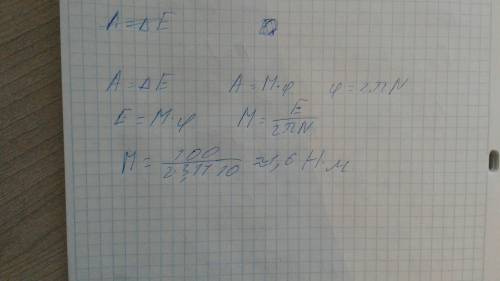 A = ΔE
A = ΔE A = M·φ φ = 2πN
E = M·φ M = E/2πN
M = 100/2·3,14·10 ≈ 1,6 Н·м